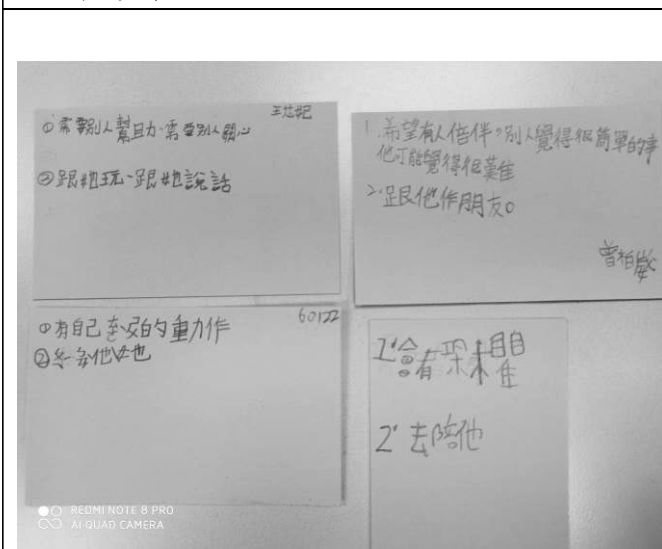 ①需要別人幫助、需要別人關心
②跟她玩、跟她說話
1.希望有人倍伴,別人覺得很簡單的事
他可能覺得很難
2.跟他作朋友。
曾柏
60122
①有自己的動作
②
1.會有困難
2.去陪他
REDMI NOTE 8 PRO
AI QUAD CAMERA